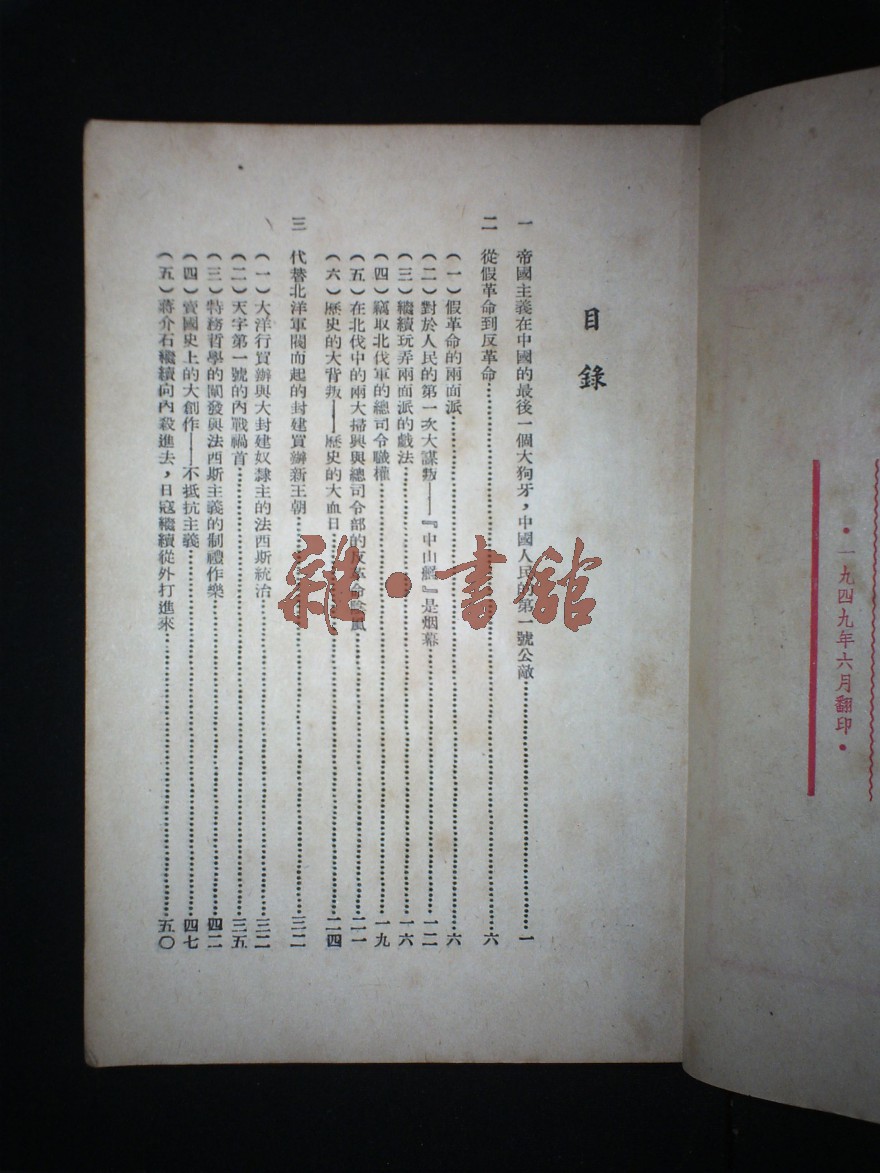 •一九四九年六月翻印•
目錄
一 帝國主義在中國的最後一個大狗牙，中國人民的第一號公敵……一
二 從假革命到反革命……六
（一）假革命的兩面派……六
（二）對於人民的第一次大謀叛——『中山艦』是烟幕……一二
（三）繼續玩弄兩面派的戲法……一六
（四）竊取北伐軍的總司令職權……一九
（五）在北伐中的兩大掃興與總司令部的反革命陰風……二一
（六）歷史的大背叛——歷史的大血日……二四
三 代替北洋軍閥而起的封建買辦新王朝……三二
（一）大洋行買辦與大封建奴隸主的法西斯統治……三二
（二）天字第一號的內戰禍首……三五
（三）特務哲學的闡發與法西斯主義的制禮作樂……四二
（四）賣國史上的大創作——不抵抗主義……四七
（五）蔣介石繼續向內殺進去，日寇繼續從外打進來……五〇
雜·書館